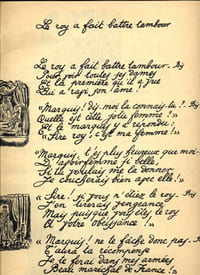 Le roy a fait battre tambour
Le roy a fait battre tambour. Bis
Pour voir toutes ses dames
Et la première qu'il a vue
Lui a ravi son âme!
"Marquis! dis-moi la connais-tu? Bis
Quelle est cette jolie femme?"
Et le marquis y a répondu:
"Sire roy! c'est ma femme!"
"Marquis, t'es plus heureux que moi.
D'avoir femme si belle,
Si tu voulais me la donner
Je coucherais bien avec elle!"
"Sire! si vous n'étiez le roy. Bis
J'en tirerai vengeance
Mais puisque vous êtes le roy
A votre obéissance!"
"Marquis! ne te fâche donc pas. Bis
T'auras ta récompense
Je te ferai dans mes armées
Beau maréchal de France!"